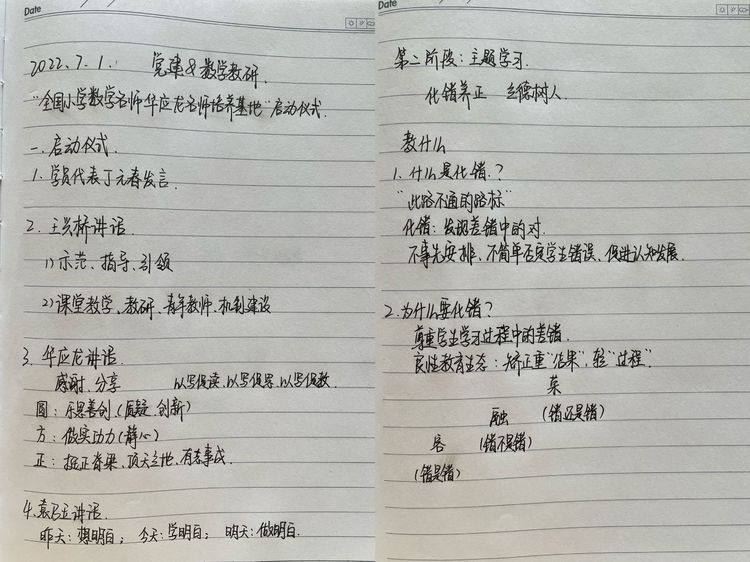 Date
2022.7.1. 党建&数学教研.
"全国小学数学名师华应龙名师培养基地"启动仪式.
一.启动仪式.
1.学员代表丁元春发言.
2.王兴桥讲话.
1)示范、指导、引领
2)课堂教学、教研、青年教师、机制建设
3.华应龙讲话.
感谢、分享 以写促读、以写促思、以写促教.
圆:乐思善创(质疑、创新)
方:做实功力(静心)
正:挺正脊梁、顶天立地、有志事成.
4.袁 讲话.
昨天:想明白; 今天:学明白; 明天:做明白.
Date
第二阶段:主题学习.
化错养正 立德树人.
教什么
1.什么是化错?
"此路不通的路标"
化错:发现差错中的对.
不事先安排、不简单否定学生错误、促进认知发展.
2.为什么要化错?
尊重学生学习过程中的差错.
良性教育生态:矫正重"结果",轻"过程".
荣
融 (错还是错)
容 (错不是错)
(错是错)